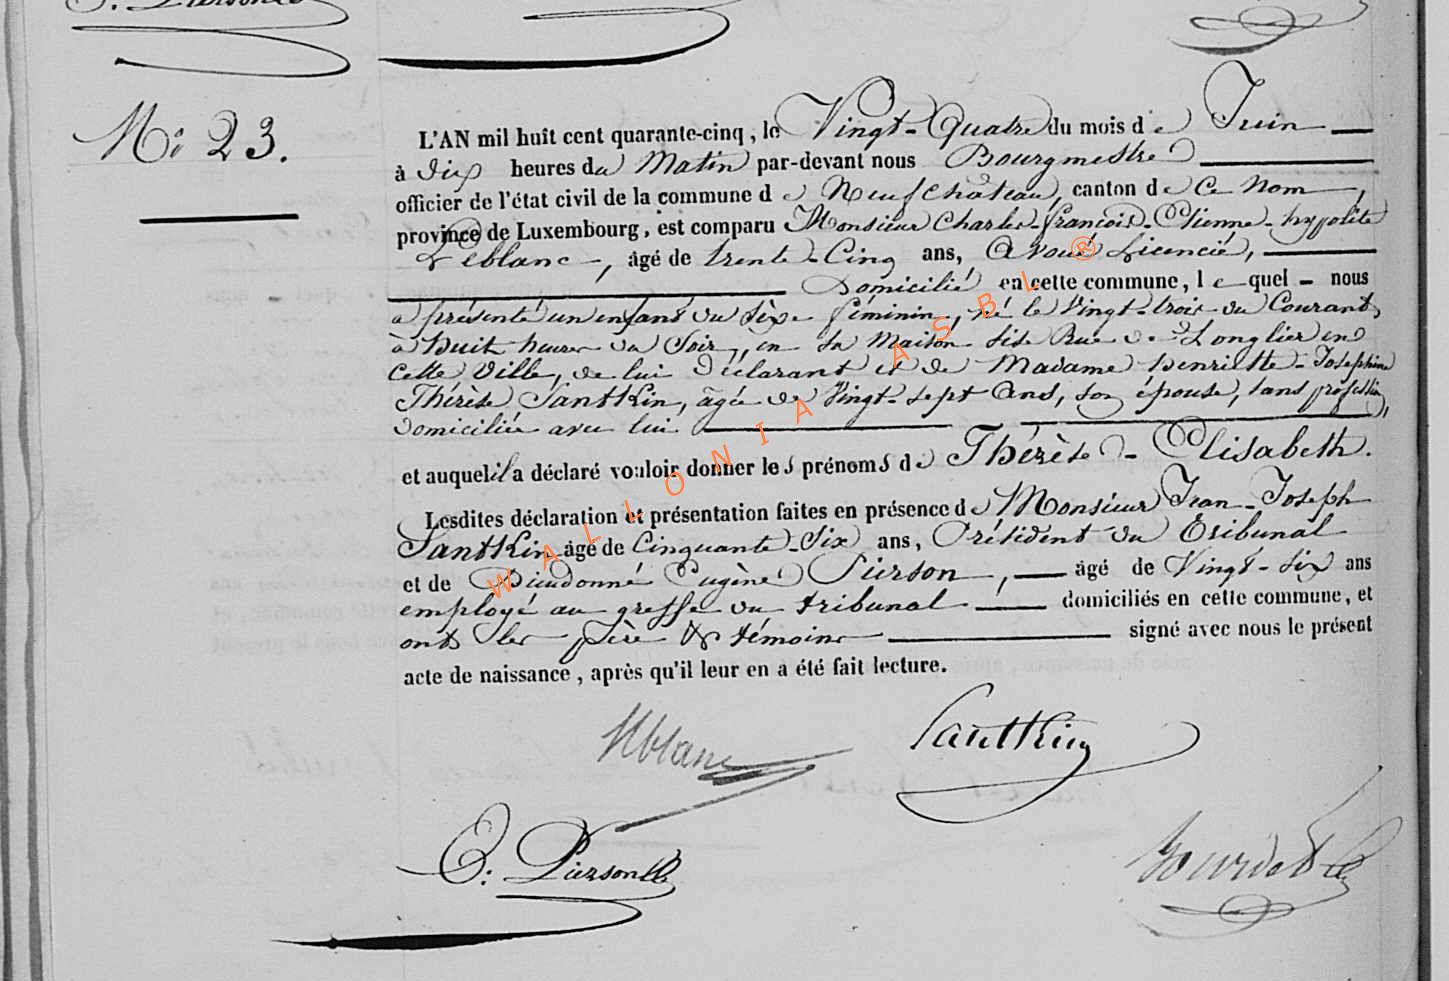 N° 23.
L'AN mil huit cent quarante-cinq, le Vingt-Quatre du mois de Juin
à dix heures du Matin par-devant nous Bourgmestre
officier de l'état civil de la commune de Neufchâteau, canton de Ce Nom,
province de Luxembourg, est comparu Monsieur Charles-françois-Etienne-hyppolite
Leblanc, âgé de trente-Cinq ans, Avoué Licencié,
Domicilié en cette commune, lequel nous
a présenté un enfant du Sèxe féminin, né le Vingt-trois du Courant,
à huit heures du Soir, en sa Maison sise Rue de Longlier en
cette Ville, de lui Déclarant et de Madame henriette-Josephine
Thérèse Santkin, âgée de Vingt-sept Ans, son épouse, sans profession,
domiciliée avec lui
et auquel il a déclaré vouloir donner les prénoms de Thérèse-Elisabeth.
Lesdites déclaration et présentation faites en présence de Monsieur Jean-Joseph
Santkin âgé de Cinquante-Six ans, Président du Tribunal
et de Dieudonné Eugène Pierson, âgé de Vingt-six ans
employé au greffe du tribunal domiciliés en cette commune, et
ont les père & témoins signé avec nous le présent
acte de naissance, après qu'il leur en a été fait lecture.
Hblanc
Santkin
E. Pierson
WALLONIA ASBL ®